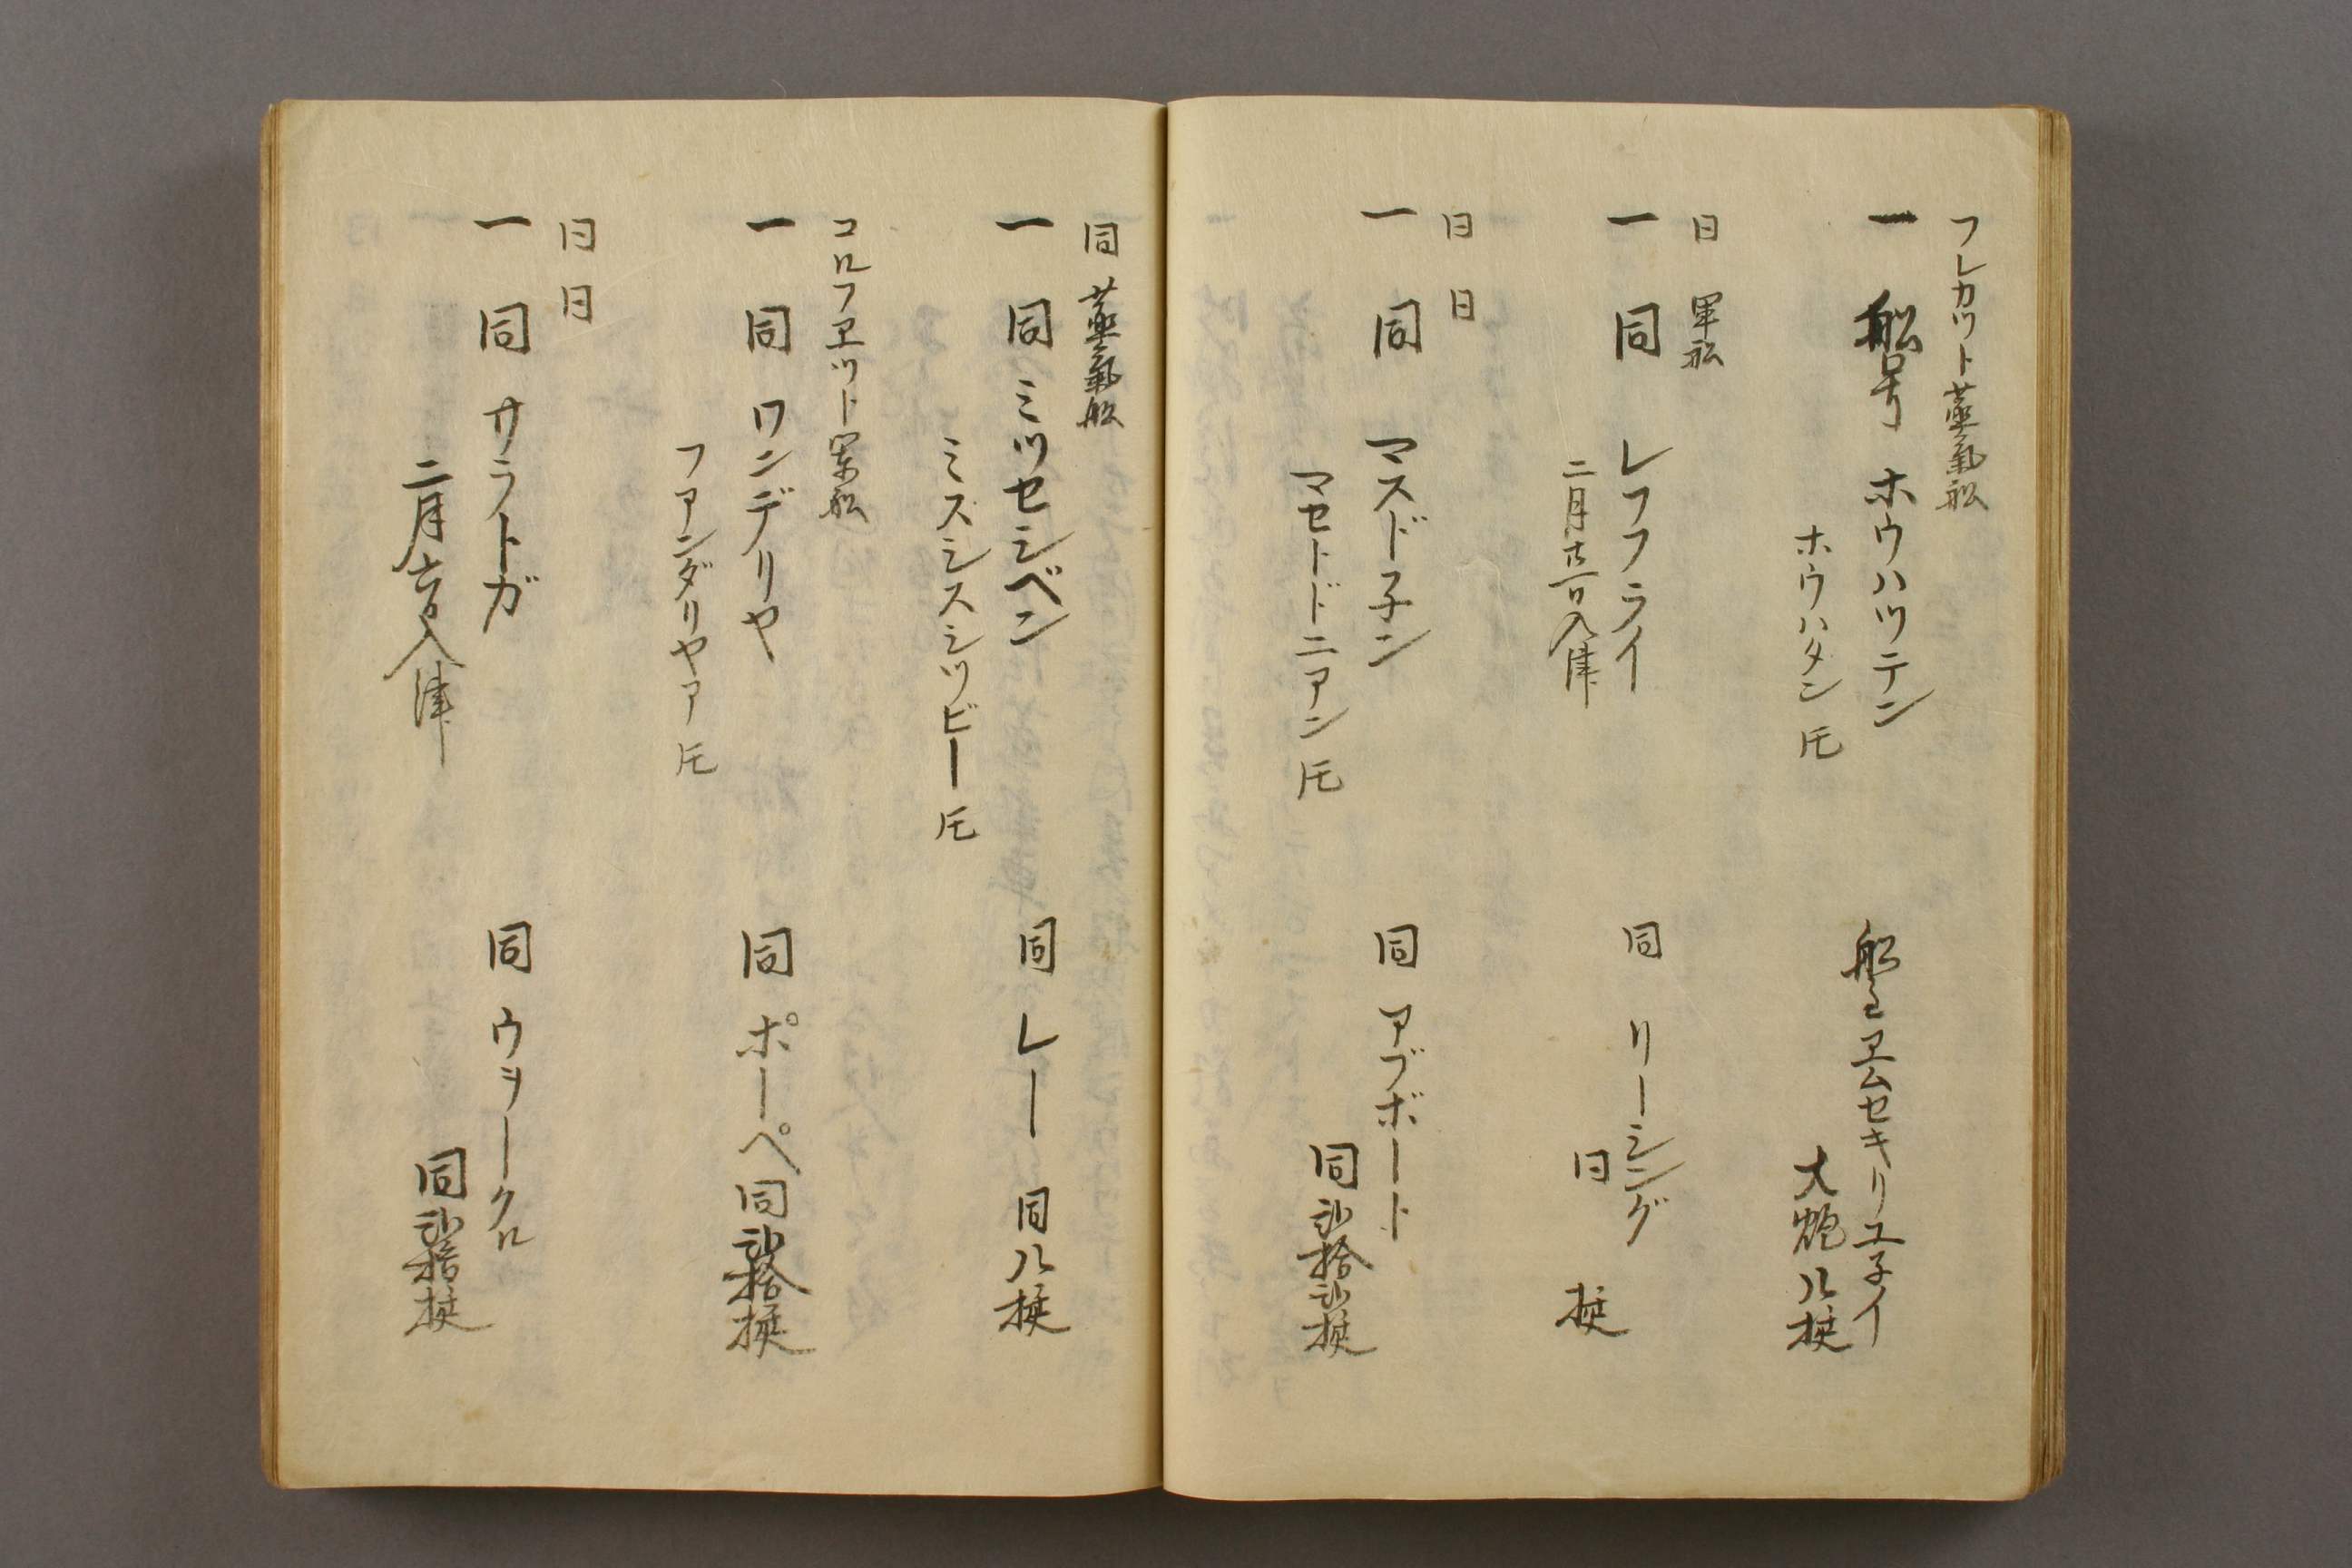 フレカツト蒸氣船
一 船号 ホウハツテン
ホウハタン 圧
船主 ヱムセキリユ子イ
大炮 八挺
同 軍船
一 同 レフフライ
二月廿一日入津
同 リーシング
同 挺
同 同
一 同 マスド子ン
マセトドニアン 圧
同 アブボート
同 弐拾弐挺
同 蒸氣船
一 同 ミツセシベン
ミスシスシツビー 圧
同 レー
同 八挺
コルフヱツト 軍船
一 同 ワンデリヤ
フアンダリヤア 圧
同 ポーペ
同 弐拾挺
同 同
一 同 サラトガ
二月六日入津
同 ウヲークル
同 弐拾挺